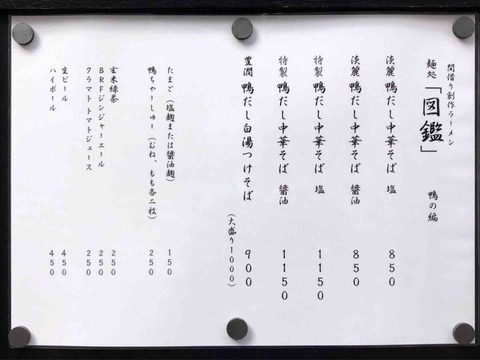 間借り創作ラーメン
麺処「図鑑」 鴨の編
淡麗 鴨だし中華そば 塩 850
淡麗 鴨だし中華そば 醤油 850
特製 鴨だし中華そば 塩 1150
特製 鴨だし中華そば 醤油 1150
豊潤 鴨だし白湯つけそば 900
(大盛り1000)
たまご(塩麹または醤油麹) 150
鴨ちゃーしゅー(むね、もも各二枚) 250
玄米緑茶 250
BRFジンジャーエール 250
クラマトトマトジュース 250
生ビール 450
ハイボール 450